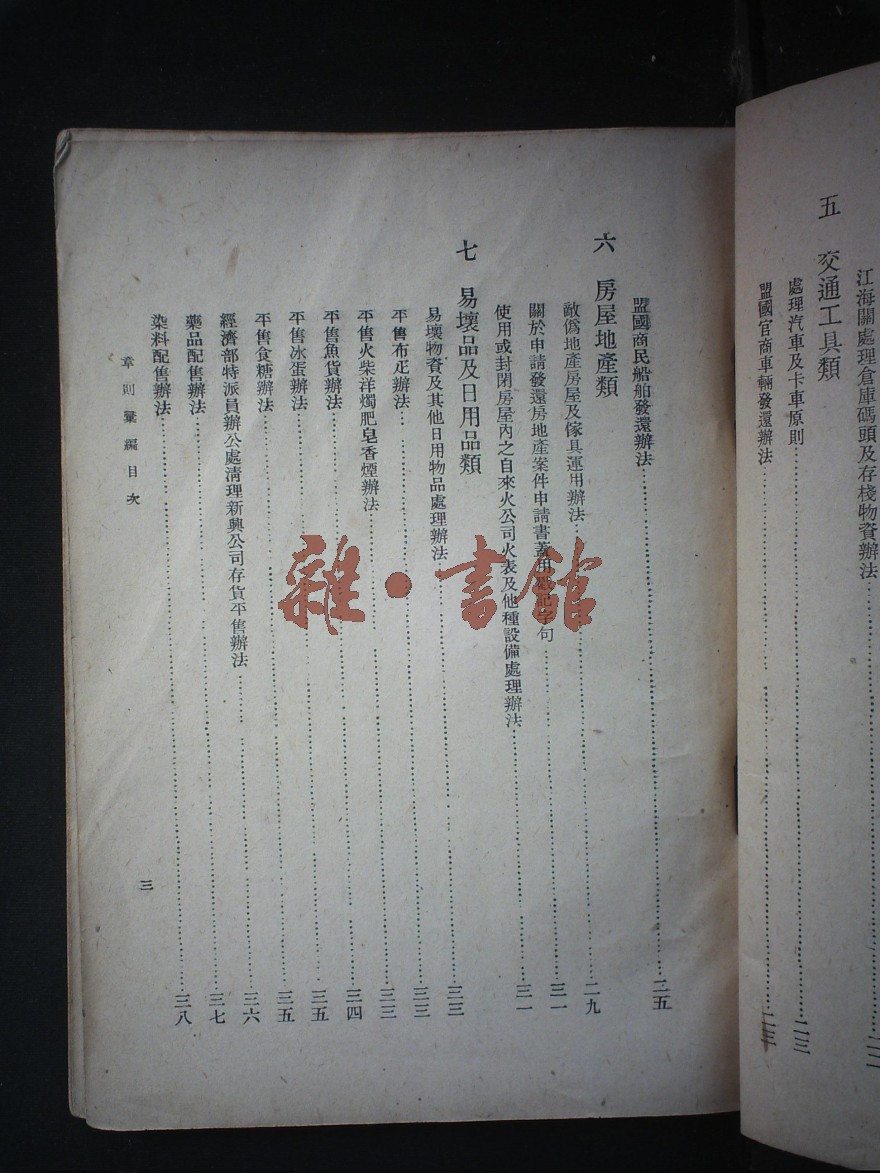 江海關處理倉庫碼頭及存棧物資辦法
五　交通工具類
處理汽車及卡車原則……二三
盟國官商車輛發還辦法……二三
盟國商民船舶發還辦法……二五
六　房屋地產類
敵僞地產房屋及傢具運用辦法……二九
關於申請發還房地產案件申請書蓋用戳記字句……三一
使用或封閉房屋內之自來火公司火表及他種設備處理辦法……三一
七　易壞品及日用品類
易壞物資及其他日用物品處理辦法……三三
平售布疋辦法……三三
平售火柴洋燭肥皂香煙辦法……三三
平售魚貨辦法……三四
平售冰蛋辦法……三五
平售食糖辦法……三五
經濟部特派員辦公處淸理新興公司存貨平售辦法……三六
藥品配售辦法……三七
染料配售辦法……三八
章則彙編目次
三
雜·書館